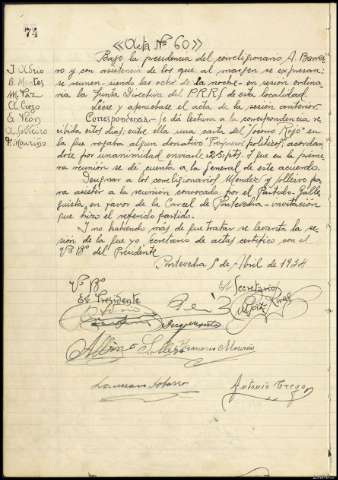 74
«Acta Nº 60»
Bajo la presidencia del correligionario A.
no y con asistencia de los que al margen se expresan;
se reunen - siendo las ocho de la noche - en sesión ordina
ria la Junta Directiva del P.R.R.S. de esta localidad.
Lese y apruebase el acta de la sesión anterior.
Correspondencia - Je dá lectura a la correspondencia re
cibida estos días; entre ella una carta del "Socorro Rojo" en
la que rogaba algun donativo acordan
dose por unanimidad enviarle 25 ptas y que en la prime
ra reunión se dé cuenta a la general de este acuerdo.
a los correligionarios Méndez y pa
ra asistir a la reunion convocada por el Partido Galle
guista, en favor de la Carcel de Pontevedra - invitación
que hizo el referido partido.
Y no habiendo más de que tratar se levanta la se
sión de la que yo Secretario de actas certifico con el
Vº Bº del Presidente.
Pontevedra de Abril de 1934
J.
B. Montes
M. Paz
A.
A. León
P. Mouriño
Vº Bº
El Presidente
El Secretario
Albino
Mouriño
Antonio